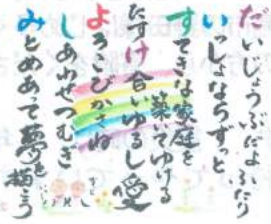 だいじょうぶだよふたり
いっしょならずっと
すてきな家庭を
築いてゆける
たすけ合いゆるし愛
よろこびかさね
しあわせつむぎ
みとめあって夢を
描こう